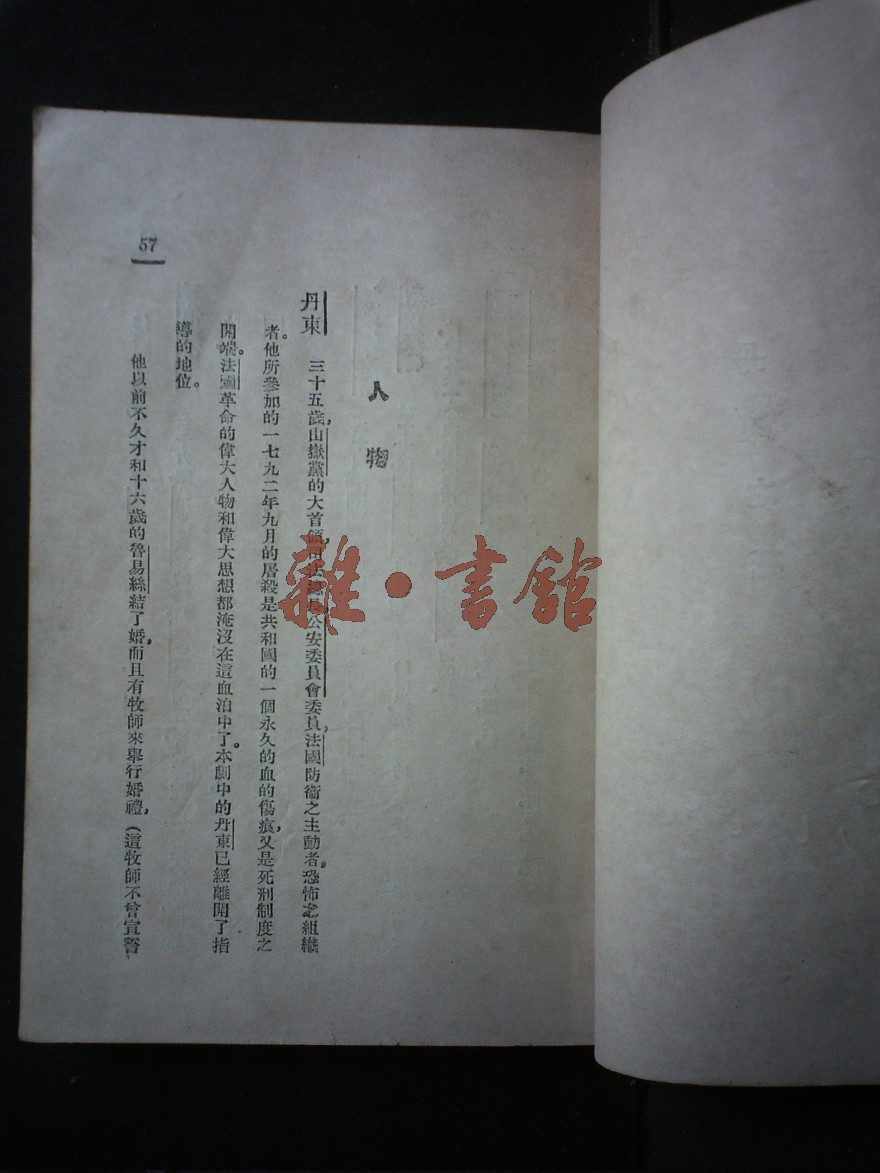 人物
丹東 三十五歲，山嶽黨的大首領，司法總長，公安委員會委員，法國防衞之主動者。恐怖之組織
者。他所參加的一七九二年九月的屠殺是共和國的一個永久的血的傷痕，又是死刑制度之
開端。法國革命的偉大人物和偉大思想都淹沒在這血泊中了。本劇中的丹東已經離開了指
導的地位。
他以前不久才和十六歲的魯易絲結了婚，而且有牧師來舉行婚禮，（這牧師不曾宣誓
57
雜·書館